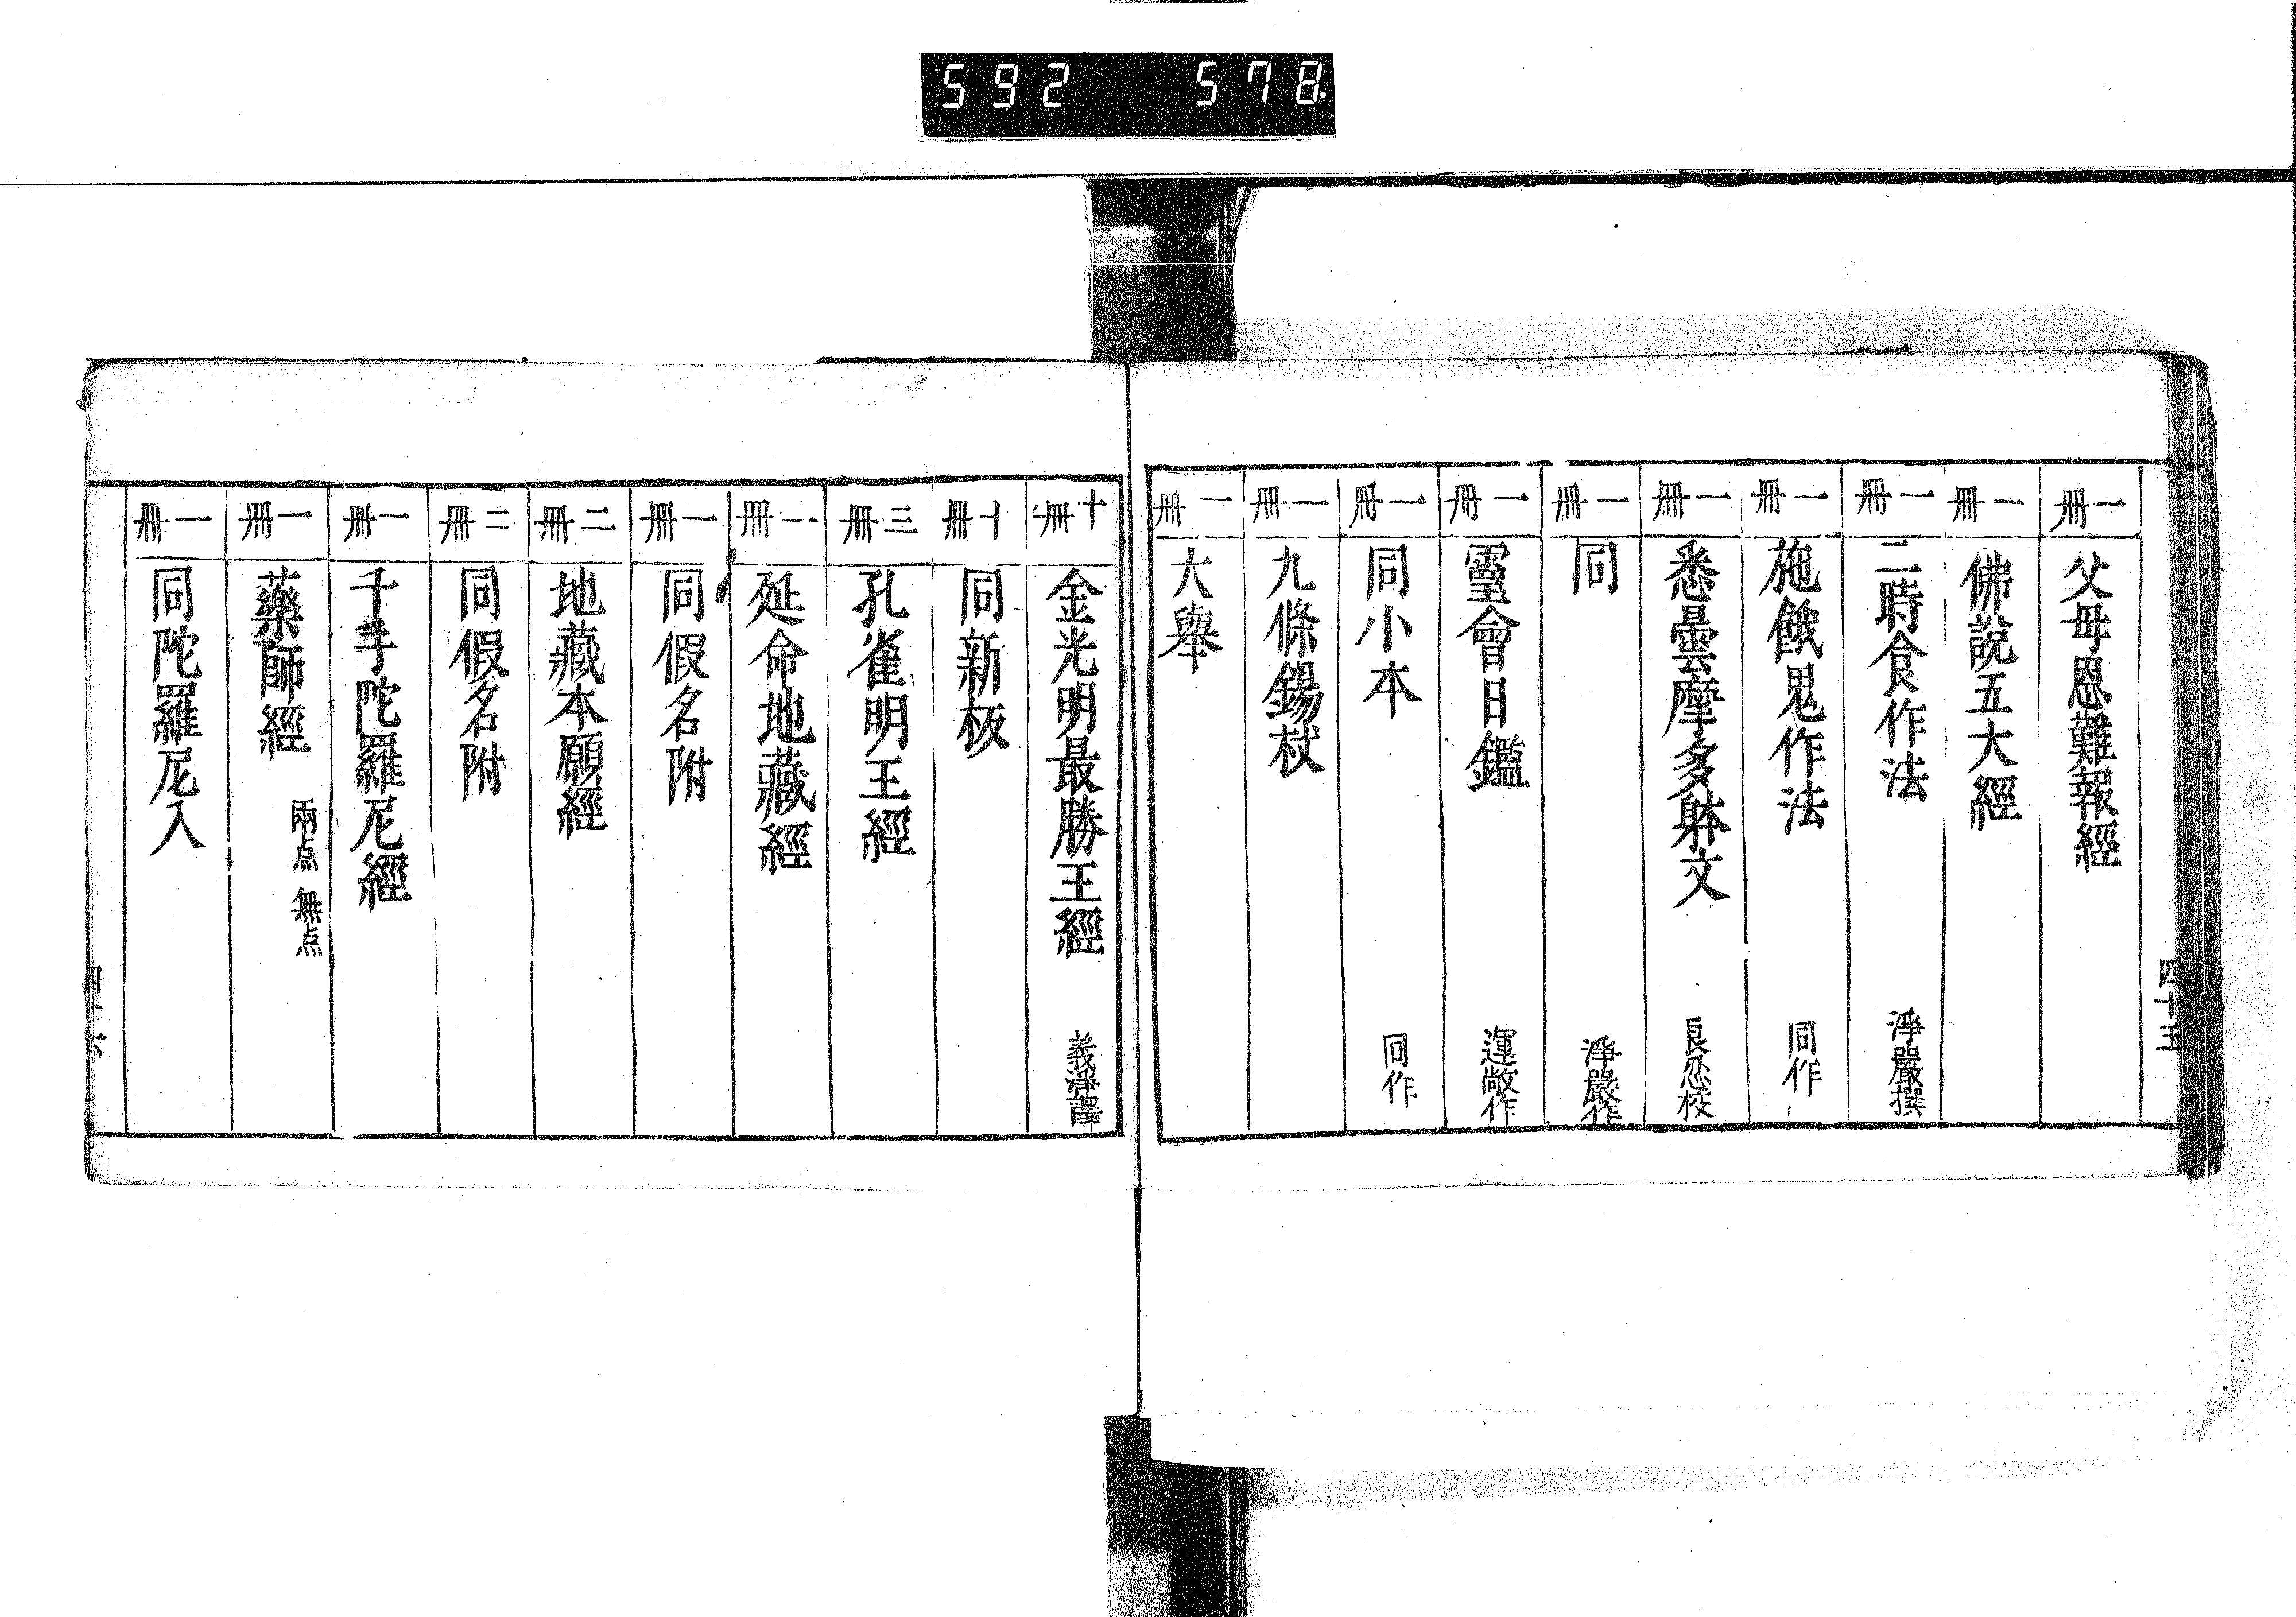 592 578.
四十五
一冊 父母恩難報經
一冊 佛說五大經
一冊 二時食作法 淨嚴撰
一冊 施餓鬼作法 同作
一冊 悉曇摩多躰文 良忍校
一冊 同 淨嚴作
一冊 靈會日鑑 運敞作
一冊 同小本 同作
一冊 九條錫杖
一冊 大擧
十冊 金光明最勝王經 義淨譯
十冊 同新板
三冊 孔雀明王經
一冊 延命地藏經
一冊 同假名附
二冊 地藏本願經
二冊 同假名附
一冊 千手陀羅尼經
一冊 藥師經 兩点 無点
一冊 同陀羅尼入
四十六